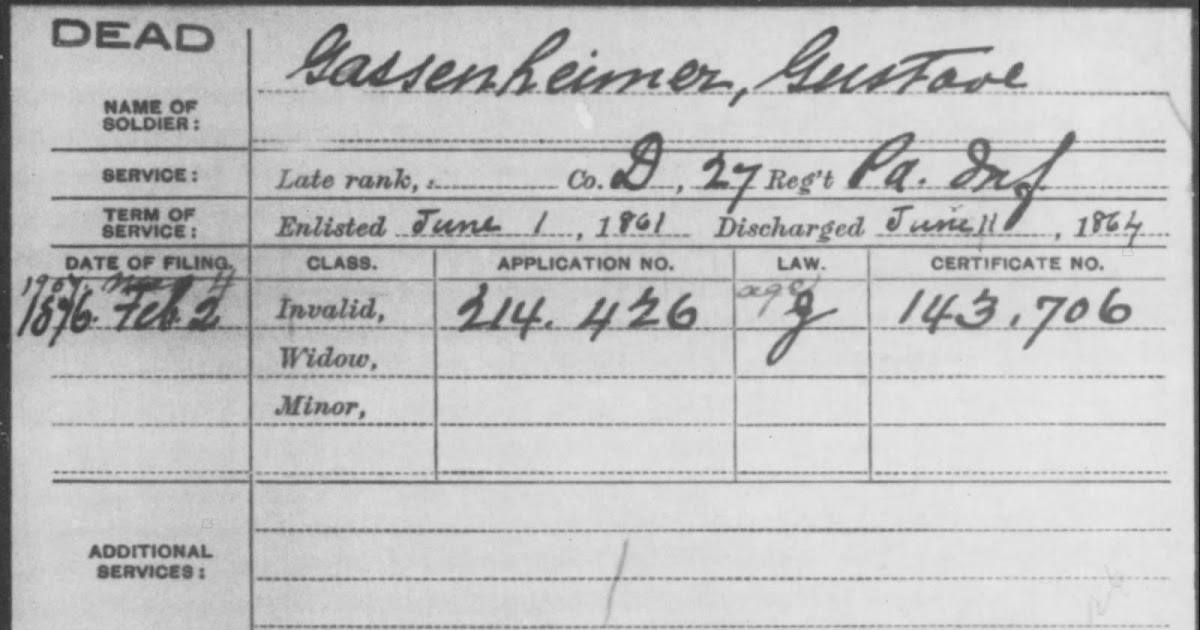 DEAD
Gassenheimer, Gustave
NAME OF
SOLDIER:
SERVICE: Late rank, Co. D, 27 Reg't Pa. Inf
TERM OF
SERVICE: Enlisted June 1, 1861 Discharged June 11, 1864
DATE OF FILING. CLASS. APPLICATION NO. LAW. CERTIFICATE NO.
1907. 4 age
1876. Feb. 2 Invalid, 214.426 g 143.706
Widow,
Minor,
ADDITIONAL
SERVICES: